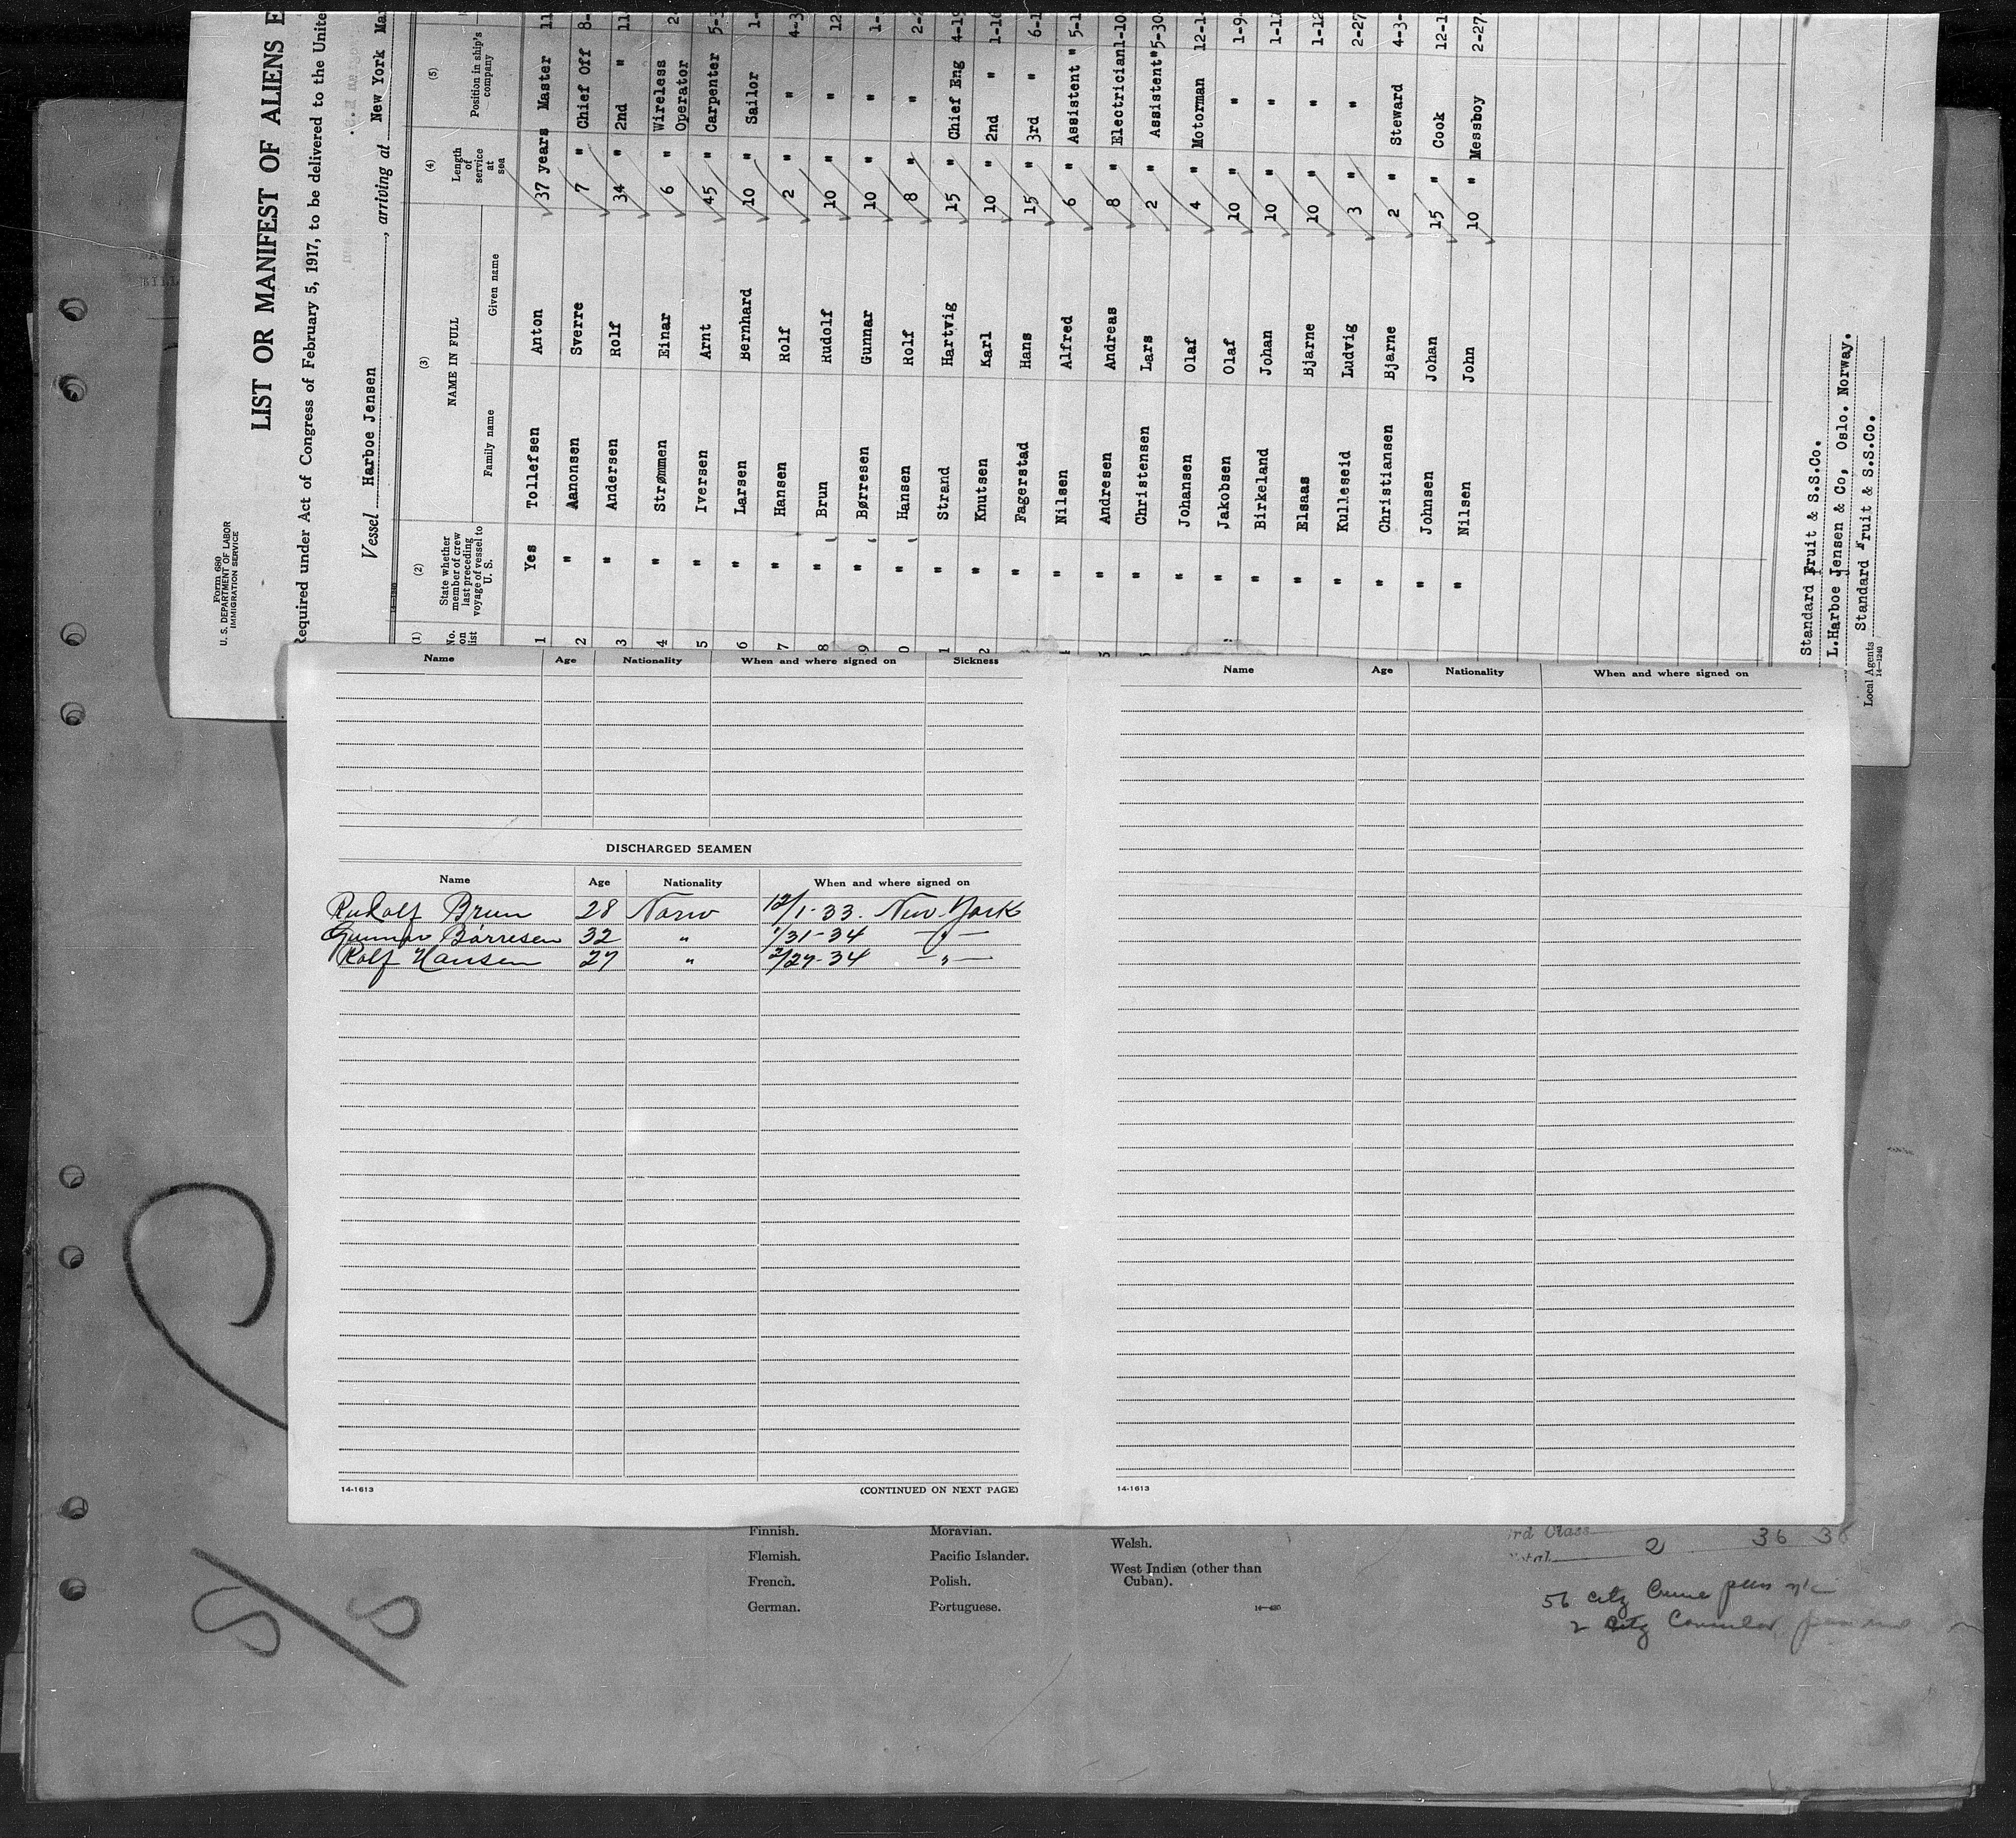 Form 680
U. S. DEPARTMENT OF LABOR
IMMIGRATION SERVICE
LIST OR MANIFEST OF ALIENS E
Required under Act of Congress of February 5, 1917, to be delivered to the Unite
Vessel Harboe Jensen , arriving at New York Ma
14-1240
(1) (2) (3) (4) (5)
No. on list State whether member of crew last preceding voyage of vessel to U. S. NAME IN FULL Length of service at sea Position in ship's company
Family name Given name
1 Yes Tollefsen Anton 37 years Master 11
2 " Aanonsen Sverre 7 " Chief Off 8-
3 " Andersen Rolf 34 " 2nd " 11
4 " Strømmen Einar 6 " Wireless Operator 2-
5 " Iversen Arnt 45 " Carpenter 5-
6 " Larsen Bernhard 10 " Sailor 1-
7 " Hansen Rolf 2 " " 4-3
8 " Brun Rudolf 10 " " 12
9 " Børresen Gunnar 10 " " 1-
0 " Hansen Rolf 8 " " 2-2
1 " Strand Hartvig 15 " Chief Eng 4-19
2 " Knutsen Karl 10 " 2nd " 1-16
" Fagerstad Hans 15 " 3rd " 6-1
" Nilsen Alfred 6 " Assistent " 5-1
" Andresen Andreas 8 " Electrician 1-10
" Christensen Lars 2 " Assistent " 5-30
" Johansen Olaf 4 " Motorman 12-1
" Jakobsen Olaf 10 " " 1-9-
" Birkeland Johan 10 " " 1-1
" Elsaas Bjarne 10 " " 1-12
" Kulleseid Ludvig 3 " " 2-27
" Christiansen Bjarne 2 " Steward 4-3-
" Johnsen Johan 15 " Cook 12-1
" Nilsen John 10 " Messboy 2-27
Standard Fruit & S.S.Co.
L.Harboe Jensen & Co, Oslo. Norway.
Local Agents Standard Fruit & S.S.Co.
14-1240
Name Age Nationality When and where signed on Sickness
DISCHARGED SEAMEN
Name Age Nationality When and where signed on
Rudolf Brun 28 Norw 12/1-33. New York
Gunnar Børresen 32 " 1/31-34 —"—
Rolf Hansen 27 " 2/27-34 —"—
14-1613 (CONTINUED ON NEXT PAGE)
Name Age Nationality When and where signed on
14-1613
Finnish. Moravian. Welsh.
Flemish. Pacific Islander. West Indian (other than
French. Polish. Cuban).
German. Portuguese.
rd Class
2 36 38
56 City
2 City
S/S